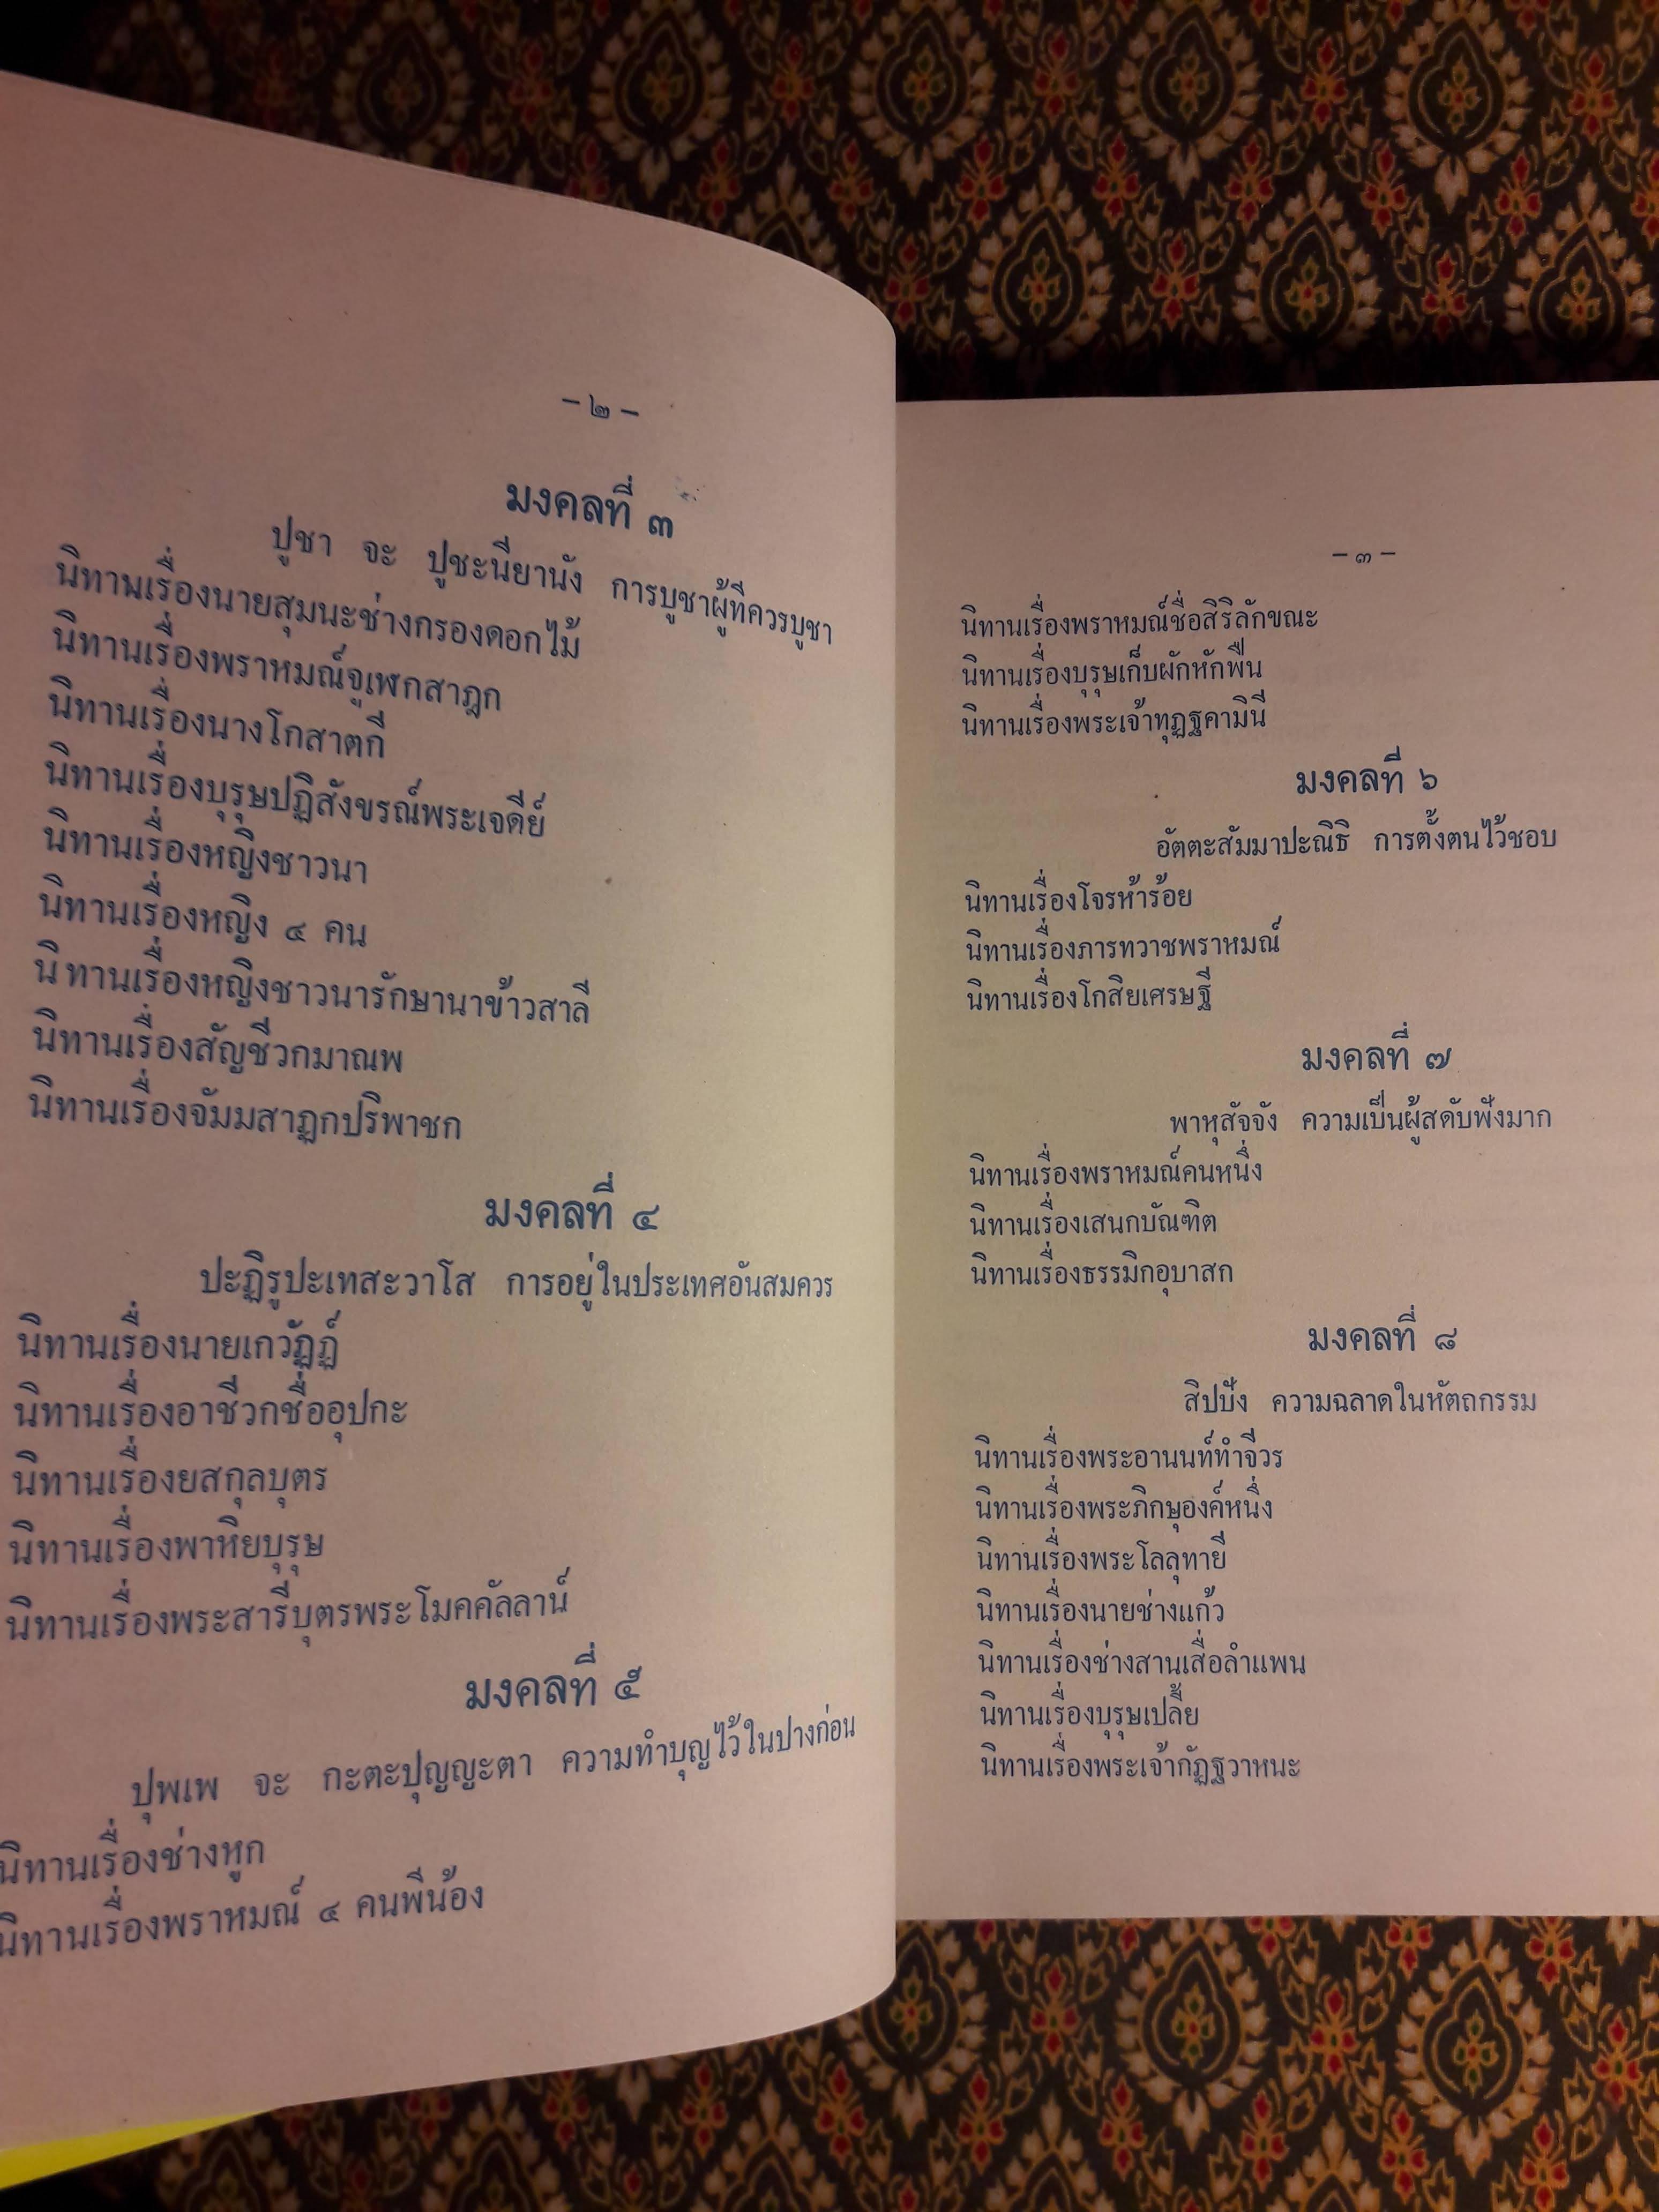 – ๒ –
มงคลที่ ๓
ปูชา จะ ปูชะนียานัง การบูชาผู้ที่ควรบูชา
นิทานเรื่องนายสุมนะช่างกรองดอกไม้
นิทานเรื่องพราหมณ์จูเฬกสาฎก
นิทานเรื่องนางโกสาตกี
นิทานเรื่องบุรุษปฏิสังขรณ์พระเจดีย์
นิทานเรื่องหญิงชาวนา
นิทานเรื่องหญิง ๔ คน
นิทานเรื่องหญิงชาวนารักษานาข้าวสาลี
นิทานเรื่องสัญชีวกมาณพ
นิทานเรื่องจัมมสาฎกปริพาชก
มงคลที่ ๔
ปะฏิรูปะเทสะวาโส การอยู่ในประเทศอันสมควร
นิทานเรื่องนายเกวัฏฏ์
นิทานเรื่องอาชีวกชื่ออุปกะ
นิทานเรื่องยสกุลบุตร
นิทานเรื่องพาหิยบุรุษ
นิทานเรื่องพระสารีบุตรพระโมคคัลลาน์
มงคลที่ ๕
ปุพเพ จะ กะตะปุญญะตา ความทำบุญไว้ในปางก่อน
นิทานเรื่องช่างหูก
นิทานเรื่องพราหมณ์ ๔ คนพี่น้อง
– ๓ –
นิทานเรื่องพราหมณ์ชื่อสิริลักขณะ
นิทานเรื่องบุรุษเก็บผักหักฟืน
นิทานเรื่องพระเจ้าทุฏฐคามินี
มงคลที่ ๖
อัตตะสัมมาปะณิธิ การตั้งตนไว้ชอบ
นิทานเรื่องโจรห้าร้อย
นิทานเรื่องภารทวาชพราหมณ์
นิทานเรื่องโกสิยเศรษฐี
มงคลที่ ๗
พาหุสัจจัง ความเป็นผู้สดับฟังมาก
นิทานเรื่องพราหมณ์คนหนึ่ง
นิทานเรื่องเสนกบัณฑิต
นิทานเรื่องธรรมิกอุบาสก
มงคลที่ ๘
สิปปัง ความฉลาดในหัตถกรรม
นิทานเรื่องพระอานนท์ทำจีวร
นิทานเรื่องพระภิกษุองค์หนึ่ง
นิทานเรื่องพระโลลุทายี
นิทานเรื่องนายช่างแก้ว
นิทานเรื่องช่างสานเสื่อลำแพน
นิทานเรื่องบุรุษเปลี้ย
นิทานเรื่องพระเจ้ากัฏฐวาหนะ